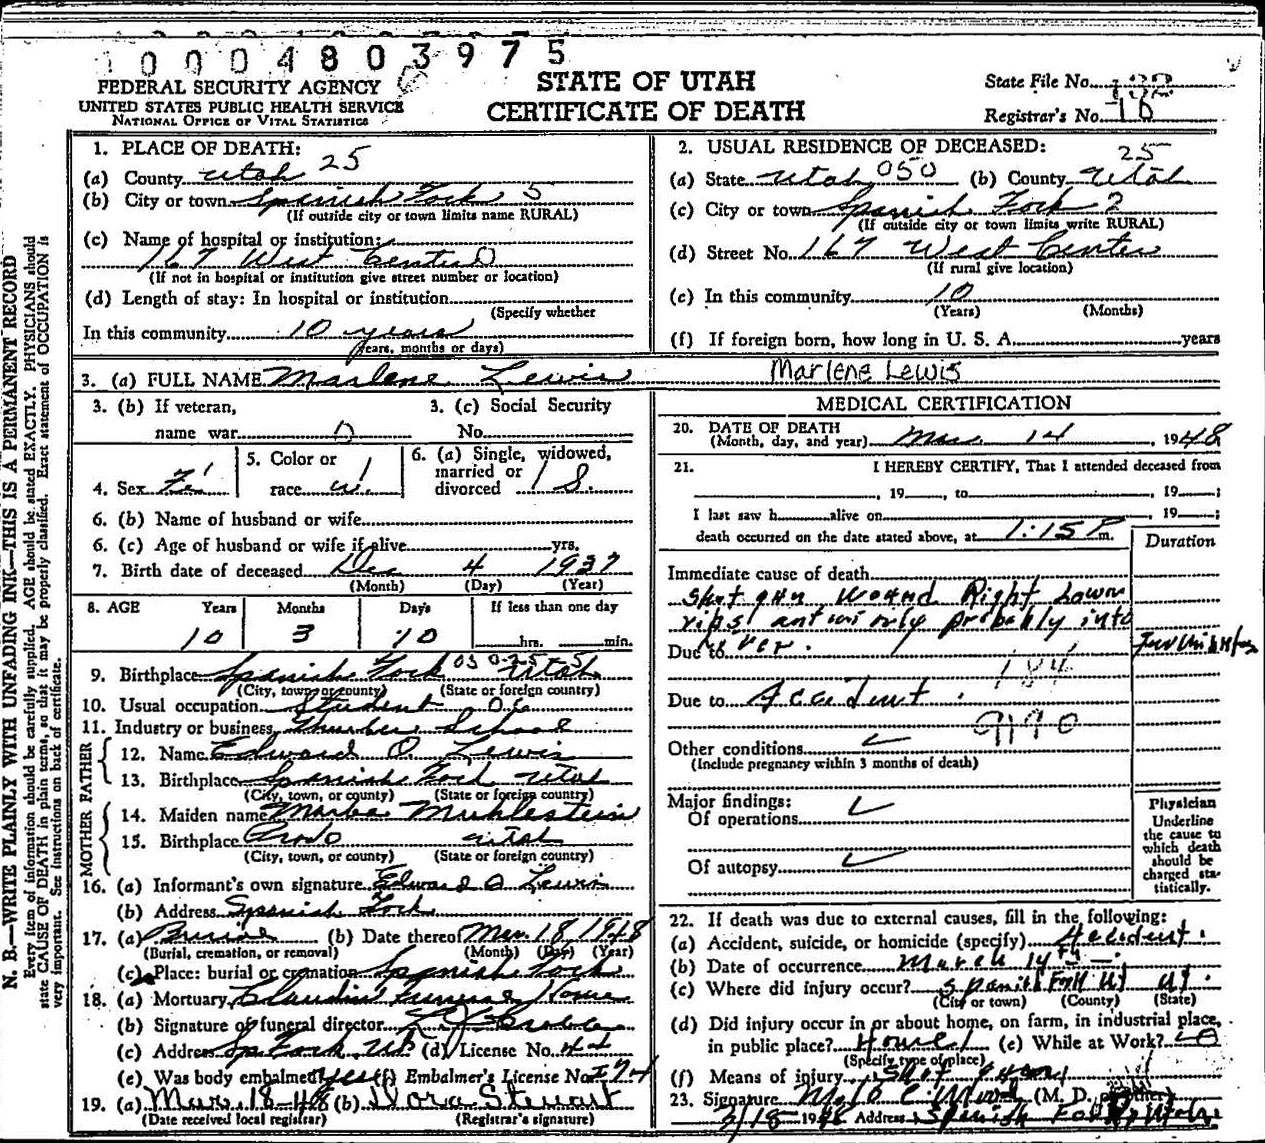 1 0 0 0 4 8 0 3 9 7 5
FEDERAL SECURITY AGENCY
UNITED STATES PUBLIC HEALTH SERVICE
NATIONAL OFFICE OF VITAL STATISTICS
STATE OF UTAH
CERTIFICATE OF DEATH
State File No.
Registrar's No. 18
N. B.—WRITE PLAINLY WITH UNFADING INK—THIS IS A PERMANENT RECORD
Every item of information should be carefully supplied. AGE should be stated EXACTLY. PHYSICIANS should
state CAUSE OF DEATH in plain terms, so that it may be properly classified. Exact statement of OCCUPATION is
very important. See instructions on back of certificate.
1. PLACE OF DEATH:
(a) County Utah 25
(b) City or town Spanish Fork 5
(If outside city or town limits name RURAL)
(c) Name of hospital or institution:
167 West Center
(If not in hospital or institution give street number or location)
(d) Length of stay: In hospital or institution
(Specify whether
In this community 10 years
years, months or days)
2. USUAL RESIDENCE OF DECEASED:
25
(a) State Utah 050 (b) County Utah
(c) City or town Spanish Fork 2
(If outside city or town limits write RURAL)
(d) Street No. 167 West Center
(If rural give location)
(e) In this community 10
(Years) (Months)
(f) If foreign born, how long in U. S. A. years
3. (a) FULL NAME Marlene Lewis Marlene Lewis
3. (b) If veteran, 3. (c) Social Security
name war 0 No.
4. Sex Fe 5. Color or race W. 6. (a) Single, widowed, married or divorced S.
6. (b) Name of husband or wife
6. (c) Age of husband or wife if alive yrs.
7. Birth date of deceased Dec 4 1937
(Month) (Day) (Year)
8. AGE Years Months Days If less than one day
10 3 10 hrs. min.
9. Birthplace Spanish Fork Utah
(City, town or county) (State or foreign country)
10. Usual occupation Student
11. Industry or business Thurber School
FATHER
12. Name Edward O. Lewis
13. Birthplace Spanish Fork Utah
(City, town, or county) (State or foreign country)
MOTHER
14. Maiden name Muhlestein
15. Birthplace Provo Utah
(City, town, or county) (State or foreign country)
16. (a) Informant's own signature Edward O Lewis
(b) Address Spanish Fork
17. (a) Burial (b) Date thereof Mar. 18 1948
(Burial, cremation, or removal) (Month) (Day) (Year)
(c) Place: burial or cremation Spanish Fork
18. (a) Mortuary Claudin Funeral Home
(b) Signature of funeral director
(c) Address Sp Fork Ut (d) License No. 44
(e) Was body embalmed? yes (f) Embalmer's License No. 174
19. (a) Mar 18-48 (b) Nora Stewart
(Date received local registrar) (Registrar's signature)
MEDICAL CERTIFICATION
20. DATE OF DEATH
(Month, day, and year) Mar. 14, 1948
21. I HEREBY CERTIFY, That I attended deceased from
, 19 , to , 19 ;
I last saw h alive on , 19 ;
death occurred on the date stated above, at 1:15 P m.
Duration
Immediate cause of death
Shot gun wound Right Lower
ribs anteriorly probably into
Due to liver. Few Minutes
184
Due to Accident.
9190
Other conditions ✓
(Include pregnancy within 3 months of death)
Major findings:
Of operations ✓
Of autopsy ✓
Physician
Underline
the cause to
which death
should be
charged sta-
tistically.
22. If death was due to external causes, fill in the following:
(a) Accident, suicide, or homicide (specify) Accident.
(b) Date of occurrence March 14th
(c) Where did injury occur? Spanish Fork Ut Ut.
(City or town) (County) (State)
(d) Did injury occur in or about home, on farm, in industrial place,
in public place? Home (e) While at Work?
(Specify type of place)
(f) Means of injury Shot gun
23. Signature (M. D. or other)
3/18-1948 Address Spanish Fork